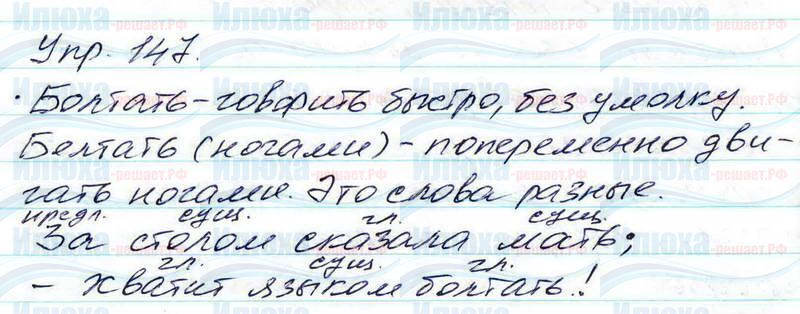 Упр. 147.
· Болтать – говорить быстро, без умолку.
Белтать (ногами) – попеременно дви-
гать ногами. Это слова разные.
предл. сущ. гл. сущ.
За столом сказала мать;
гл. сущ. гл.
– Хватит языком болтать!